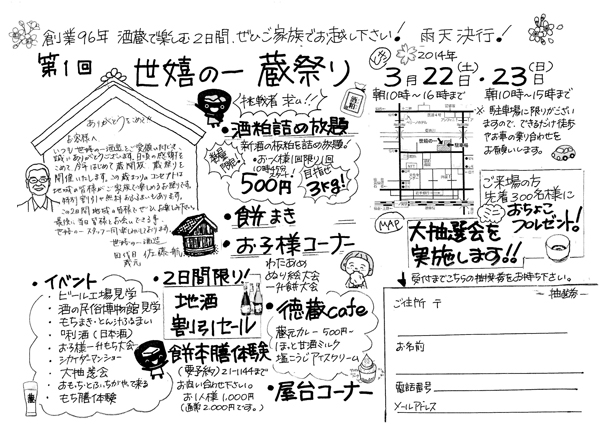 創業96年 酒蔵で楽しむ2日間、ぜひご家族でお越し下さい! 雨天決行!
第1回 世嬉の一 蔵祭り
とき
2014年
3月22日(土)・23日(日)
朝10時～16時まで 朝10時～15時まで
※駐車場に限りがござい
ますので、できるだけ徒歩
やお車の乗り合わせを
お願いします。
世嬉の一
MAP
ありがとうをこめて!!
お客様へ
いつも世嬉の一酒造をご愛顧いただき、
誠にありがとうございます。日頃の感謝を
こめて今年はじめて蔵開放、蔵祭りを
開催いたします。この蔵まつりのコンセプトは
地域の皆様がご家族で楽しめるお祭りです。
特別割引や無料おふるまいもあります。
この2日間
世嬉の一酒造
四代目 佐藤 航
蔵元
挑戦者 求ム!!!
・酒粕詰の放題
新酒の板粕を詰め放題!
数量限定!
お一人様1回限り1回
500円
目指せ3kg!
・餅まき
・お子様コーナー
わたあめ
ぬり絵大会
一升餅大会
ご来場の方
先着300名様に
ミニおちょこ
プレゼント!
大抽選会を
実施します!!
受付までこちらの抽選券をお持ち下さい。
・イベント
・ビール工場見学
・酒の民俗博物館見学
・もちまき・とん汁ふるまい
・唎酒(日本酒)
・お子様一升もち大会
・シカケダーマンショー
・大抽選会
・おもち・とふいちがやって来る
・もち膳体験
・2日間限り!
地酒
割引セール
・餅本膳体験
(要予約)21-1144まで
お問い合わせ下さい。
お1人様1,000円
(通常2,000円です。)
・徳蔵cafe
蔵元カレー500円～
ほっと甘酒ミルク
塩こうじアイスクリーム
・屋台コーナー
抽選券
ご住所 〒
お名前
電話番号
メールアドレス